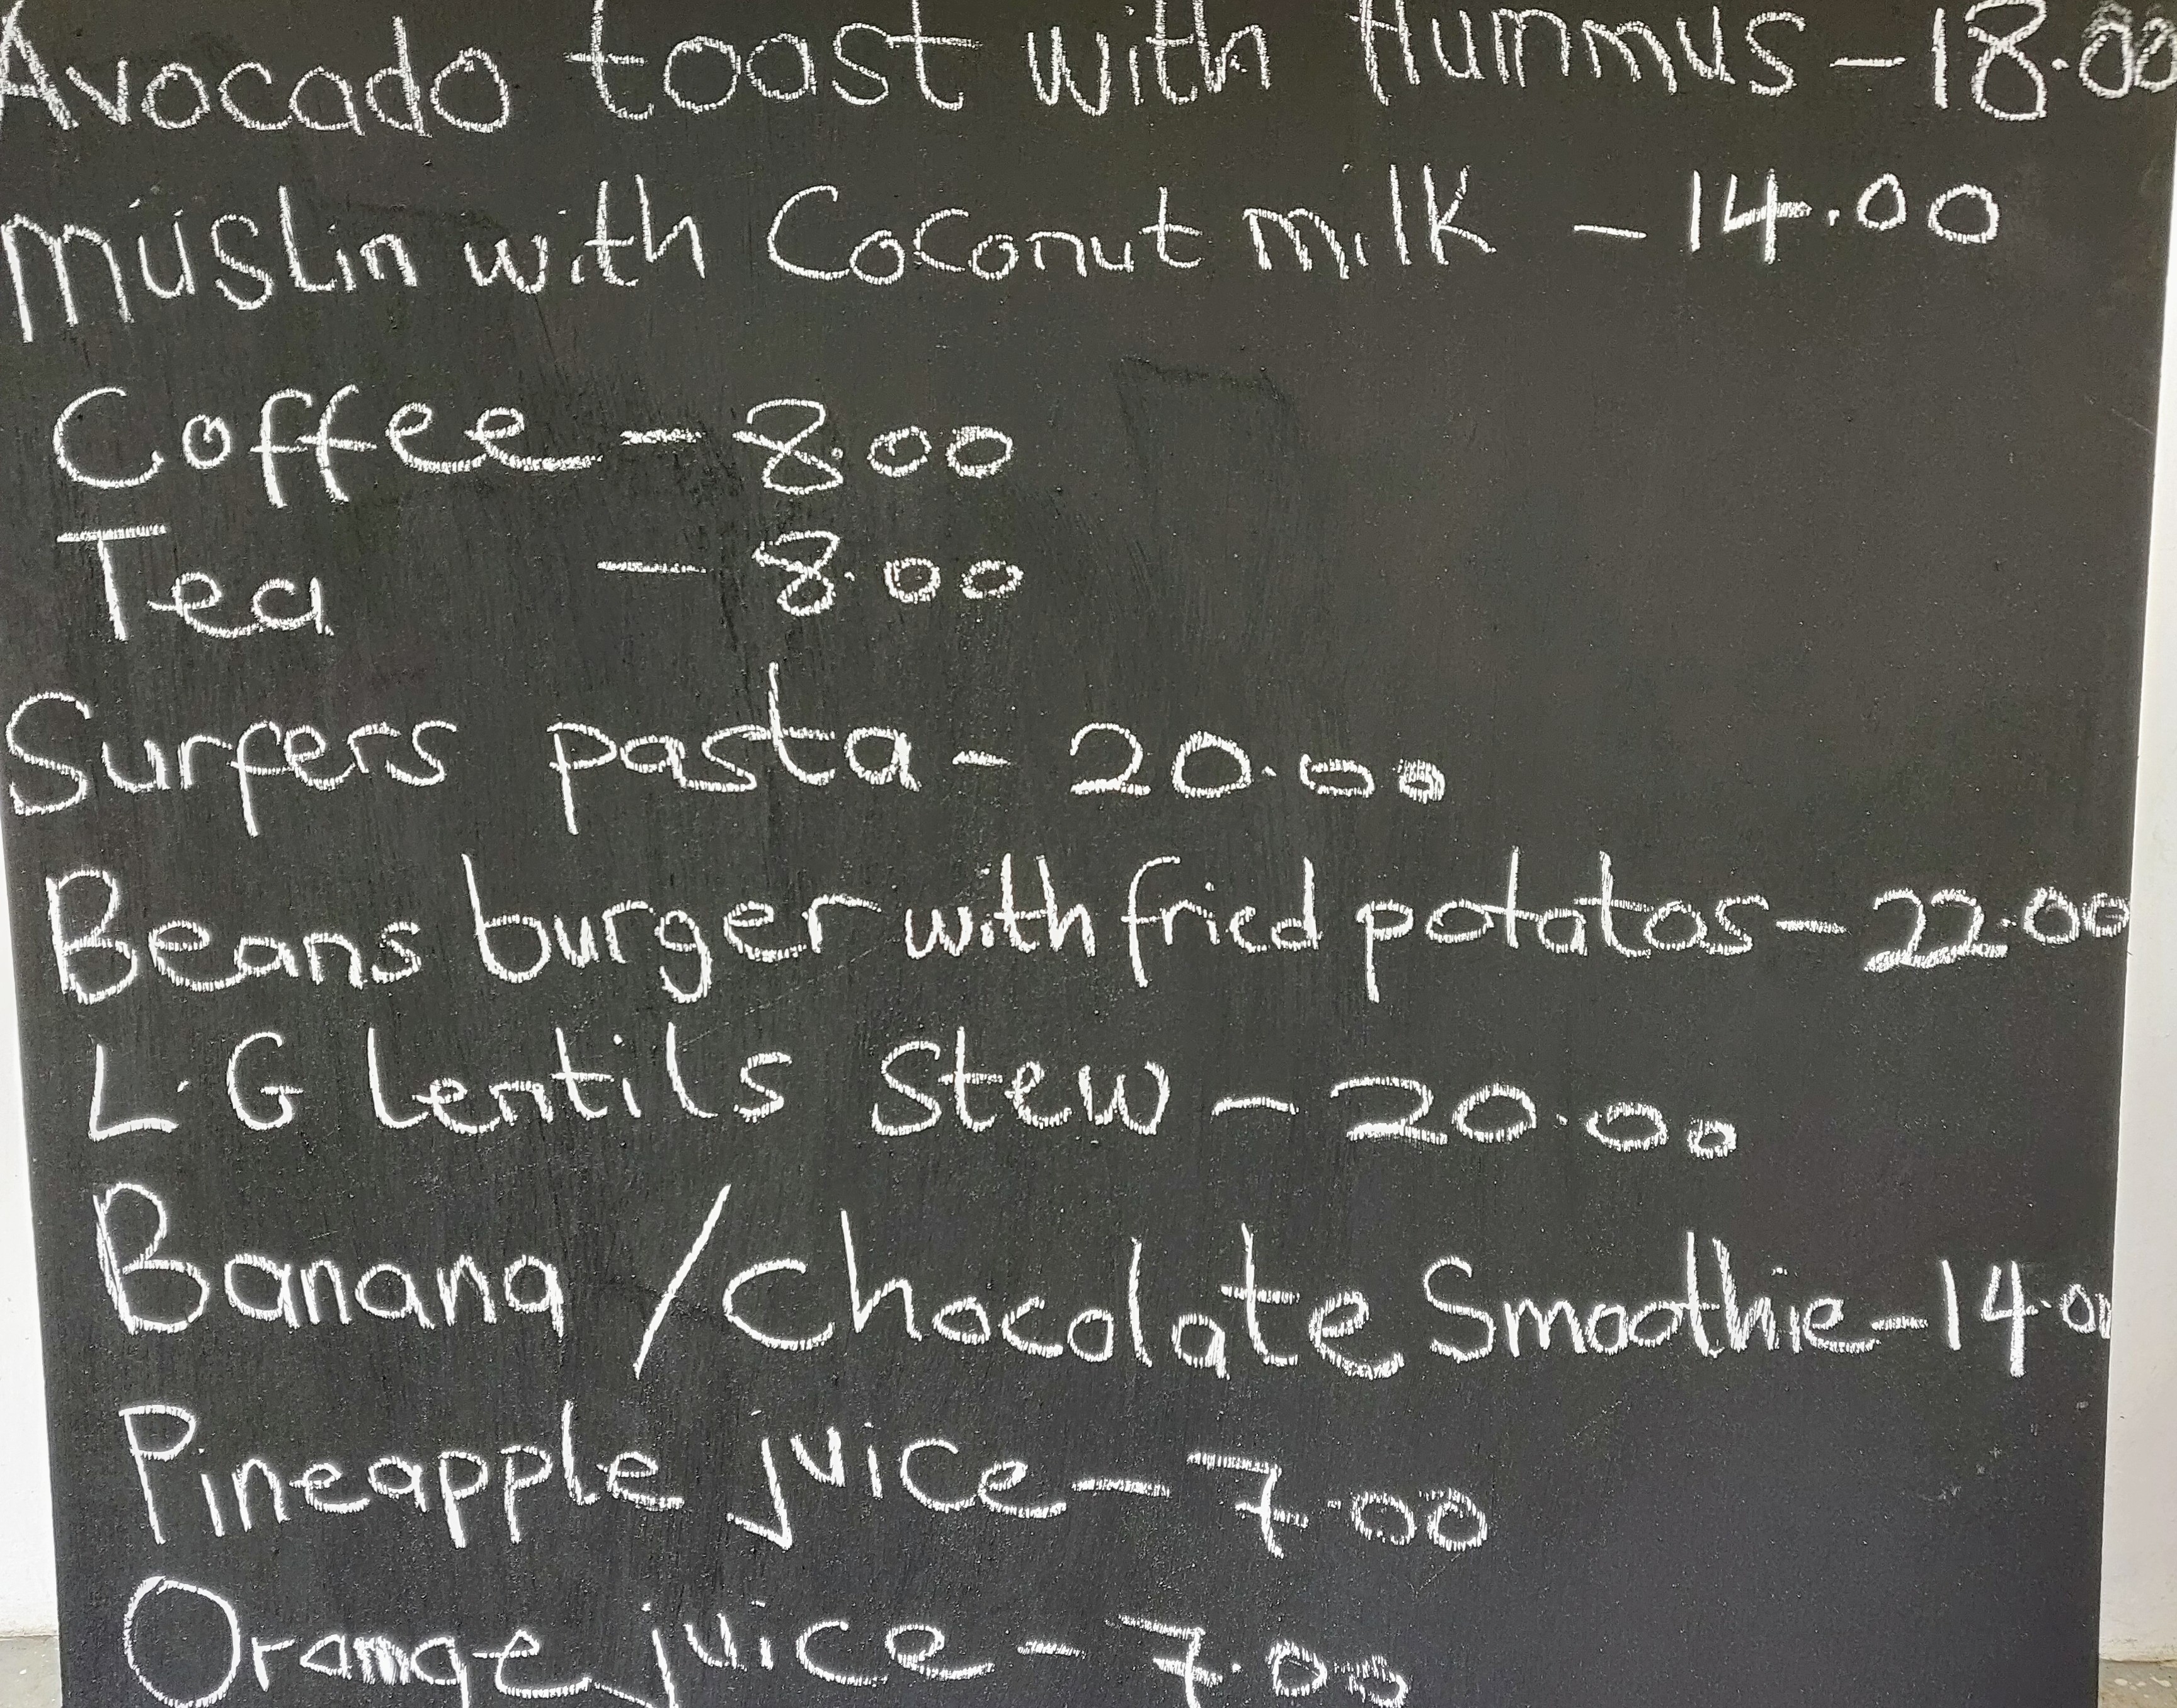 Avocado toast with Hummus - 18.00
Müslin with Coconut milk - 14.00
Coffee - 8.00
Tea - 8.00
Surfers pasta - 20.00
Beans burger with fried potatos - 22.00
L.G lentils Stew - 20.00
Banana / Chocolate Smoothie - 14.00
Pineapple juice - 7.00
Orange juice - 7.00